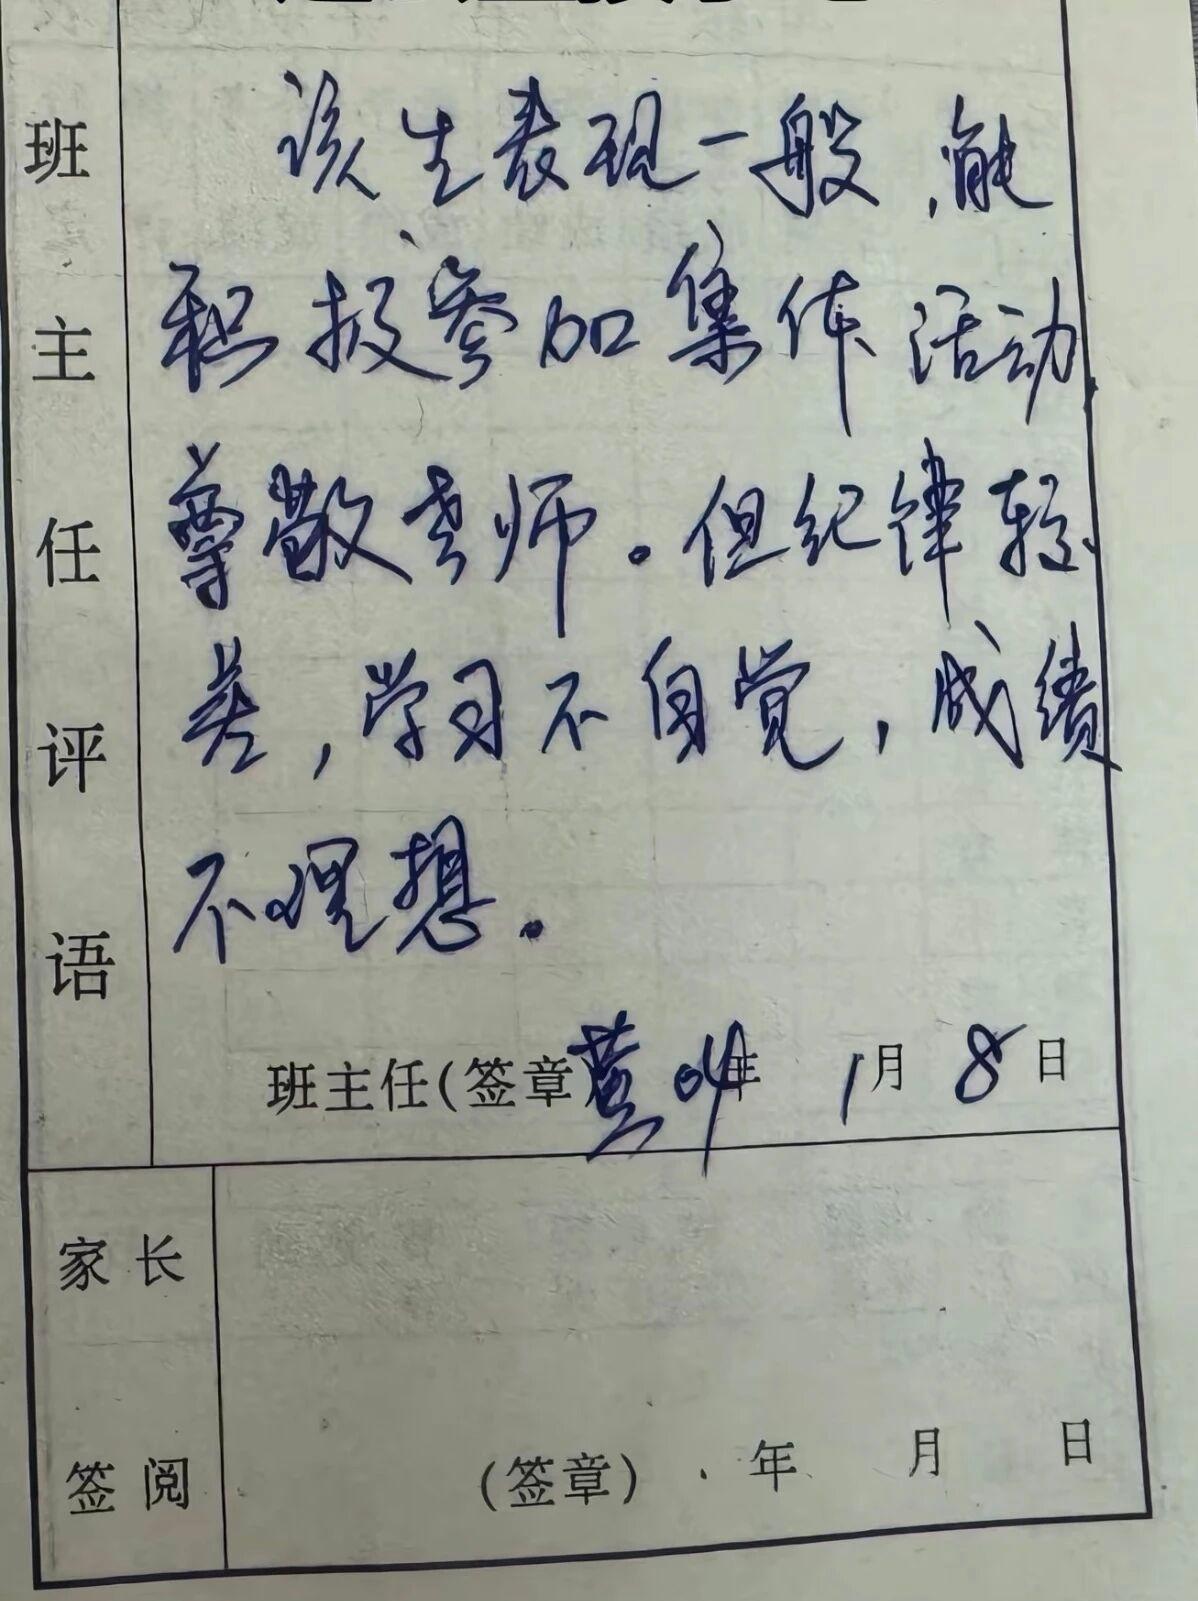 班主任评语
该生表现一般，能
积极参加集体活动
尊敬老师。但纪律较
差，学习不自觉，成绩
不理想。
班主任(签章 黄 04年 1月 8日
家长
签阅
(签章) 年 月 日